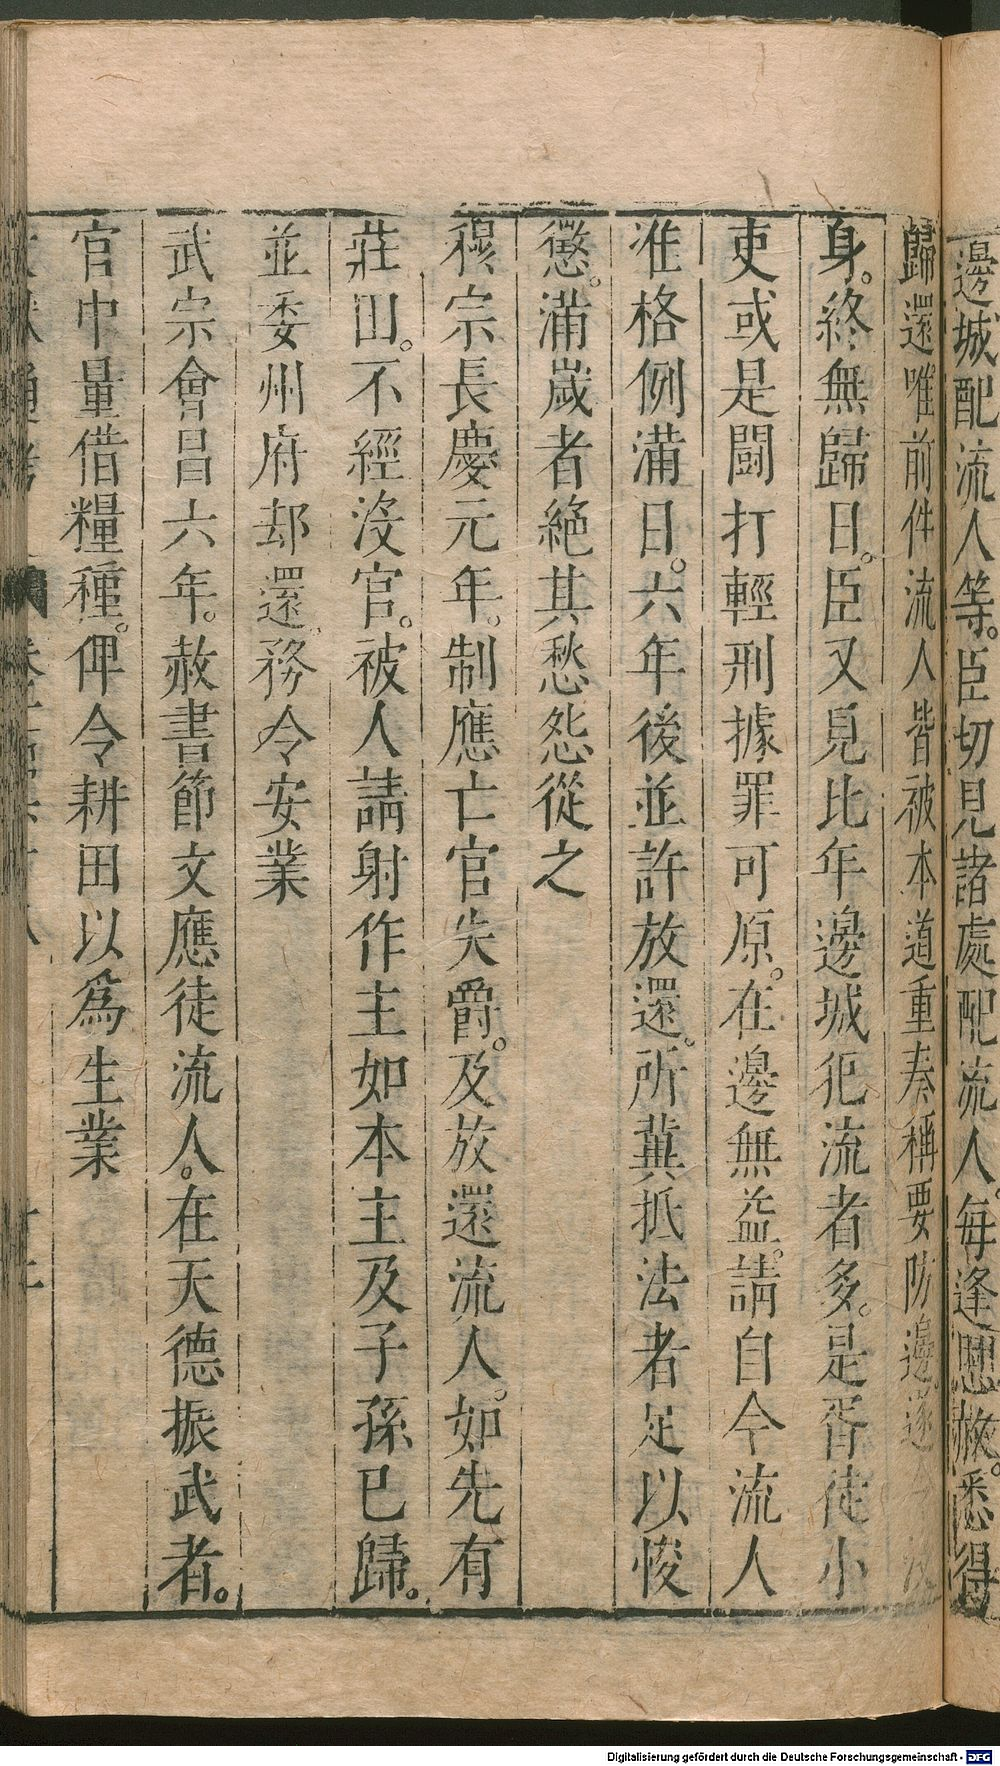 邊城配流人等。臣切見諸處配流人。每逢恩赦。悉得
歸還唯前件流人皆被本道重奏稱要防邊遂沒
身。終無歸日。臣又見比年邊城犯流者多。是胥徒小
吏或是鬪打輕刑據罪可原。在邊無益。請自今流人
准格例滿日。六年後並許放還。所冀抵法者足以悛
懲。滿歲者絶其愁怨從之
穆宗長慶元年。制應亡官失爵。及放還流人。如先有
莊田。不經沒官。被人請射作主如本主及子孫已歸。
並委州府却還。務令安業
武宗會昌六年。赦書節文應徒流人。在天德振武者。
官中量借糧種。俾令耕田以爲生業
Digitalisierung gefördert durch die Deutsche Forschungsgemeinschaft - DFG